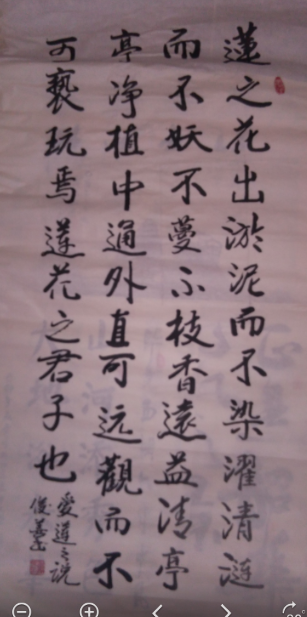 蓮之花出淤泥而不染濯清涟
而不妖不蔓不枝香遠益清亭
亭净植中通外直可远觀而不
可褻玩焉蓮花之君子也
爱蓮之说